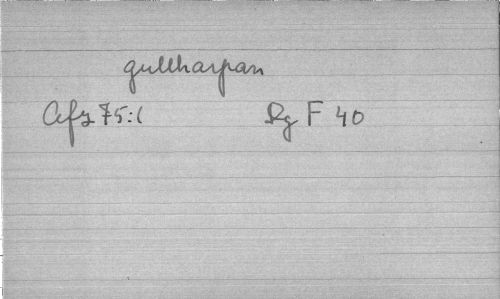 gullharpan
Afz 75:1 Rg F 40